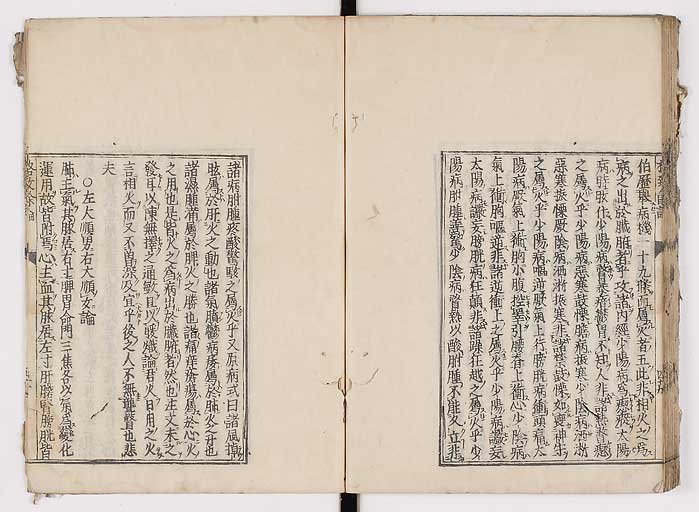 伯歷舉病機一十九條而属火者五此非相火之為
病之出於臓腑者乎攷諸内經少陽病為瘈瘲太陽
病時眩仆少陰病瞀暴瘖鬱冒不知人非諸熱瞀瘈
之属火乎少陽病惡寒鼓慄膽病振寒少陰病洒淅
惡寒振慄厥陰病洒淅振寒非諸禁鼓慄如喪神守
之属火乎少陽病嘔逆厥氣上行膀胱病衝頭痛太
陽病厥氣上衝胸小腹控睾引腰脊上衝心少陰病
氣上衝胸嘔逆非諸逆衝上之属火乎少陽病譫妄
太陽病譫妄膀胱病狂顛非諸躁狂越之属火乎少
陽病胕腫善驚少陰病瞀熱以酸胕腫不能久立非
諸病胕腫疼酸驚駭之属火乎又原病式曰諸風掉
眩属於肝火之動也諸氣膹鬱病痿属於肺火之升也
諸濕腫滿属於脾火之勝也諸痛痒瘡瘍属於心火
之用也是皆火之為病出於臓腑者然也注文未之
發耳以陳無擇之通敏且以暖熾論君火日用之火
言相火而又不曽深及宜乎後之人不無聾瞽也悲
夫
○左大順男右大順女論
肺主氣其脉居右寸脾胃命門三焦各以氣為變化
運用故皆附焉心主血其脉居左寸肝膽腎膀胱皆